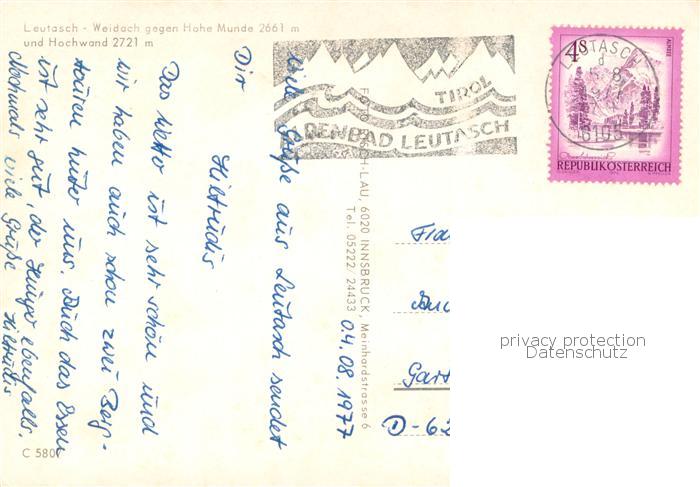 Leutasch - Weidach gegen Hohe Munde 2661 m
und Hochwand 2721 m
04.08.1977
Viele Grüße aus Leutasch sendet
Dir
Hiltrudis
Das Wetter ist sehr schön und
wir haben auch schon zwei Berg-
touren hinter uns. Auch das Essen
ist sehr gut, der Hunger ebenfalls.
Nochmals viele Grüße
Hiltrudis
C 5807
TIROL
ALPENBAD LEUTASCH
LEUTASCH
6105
4S
ALMSEE
REPUBLIK ÖSTERREICH
-LAU, 6020 INNSBRUCK, Meinhardstrasse 6
Tel. 05222/24433
D-62
privacy protection
Datenschutz